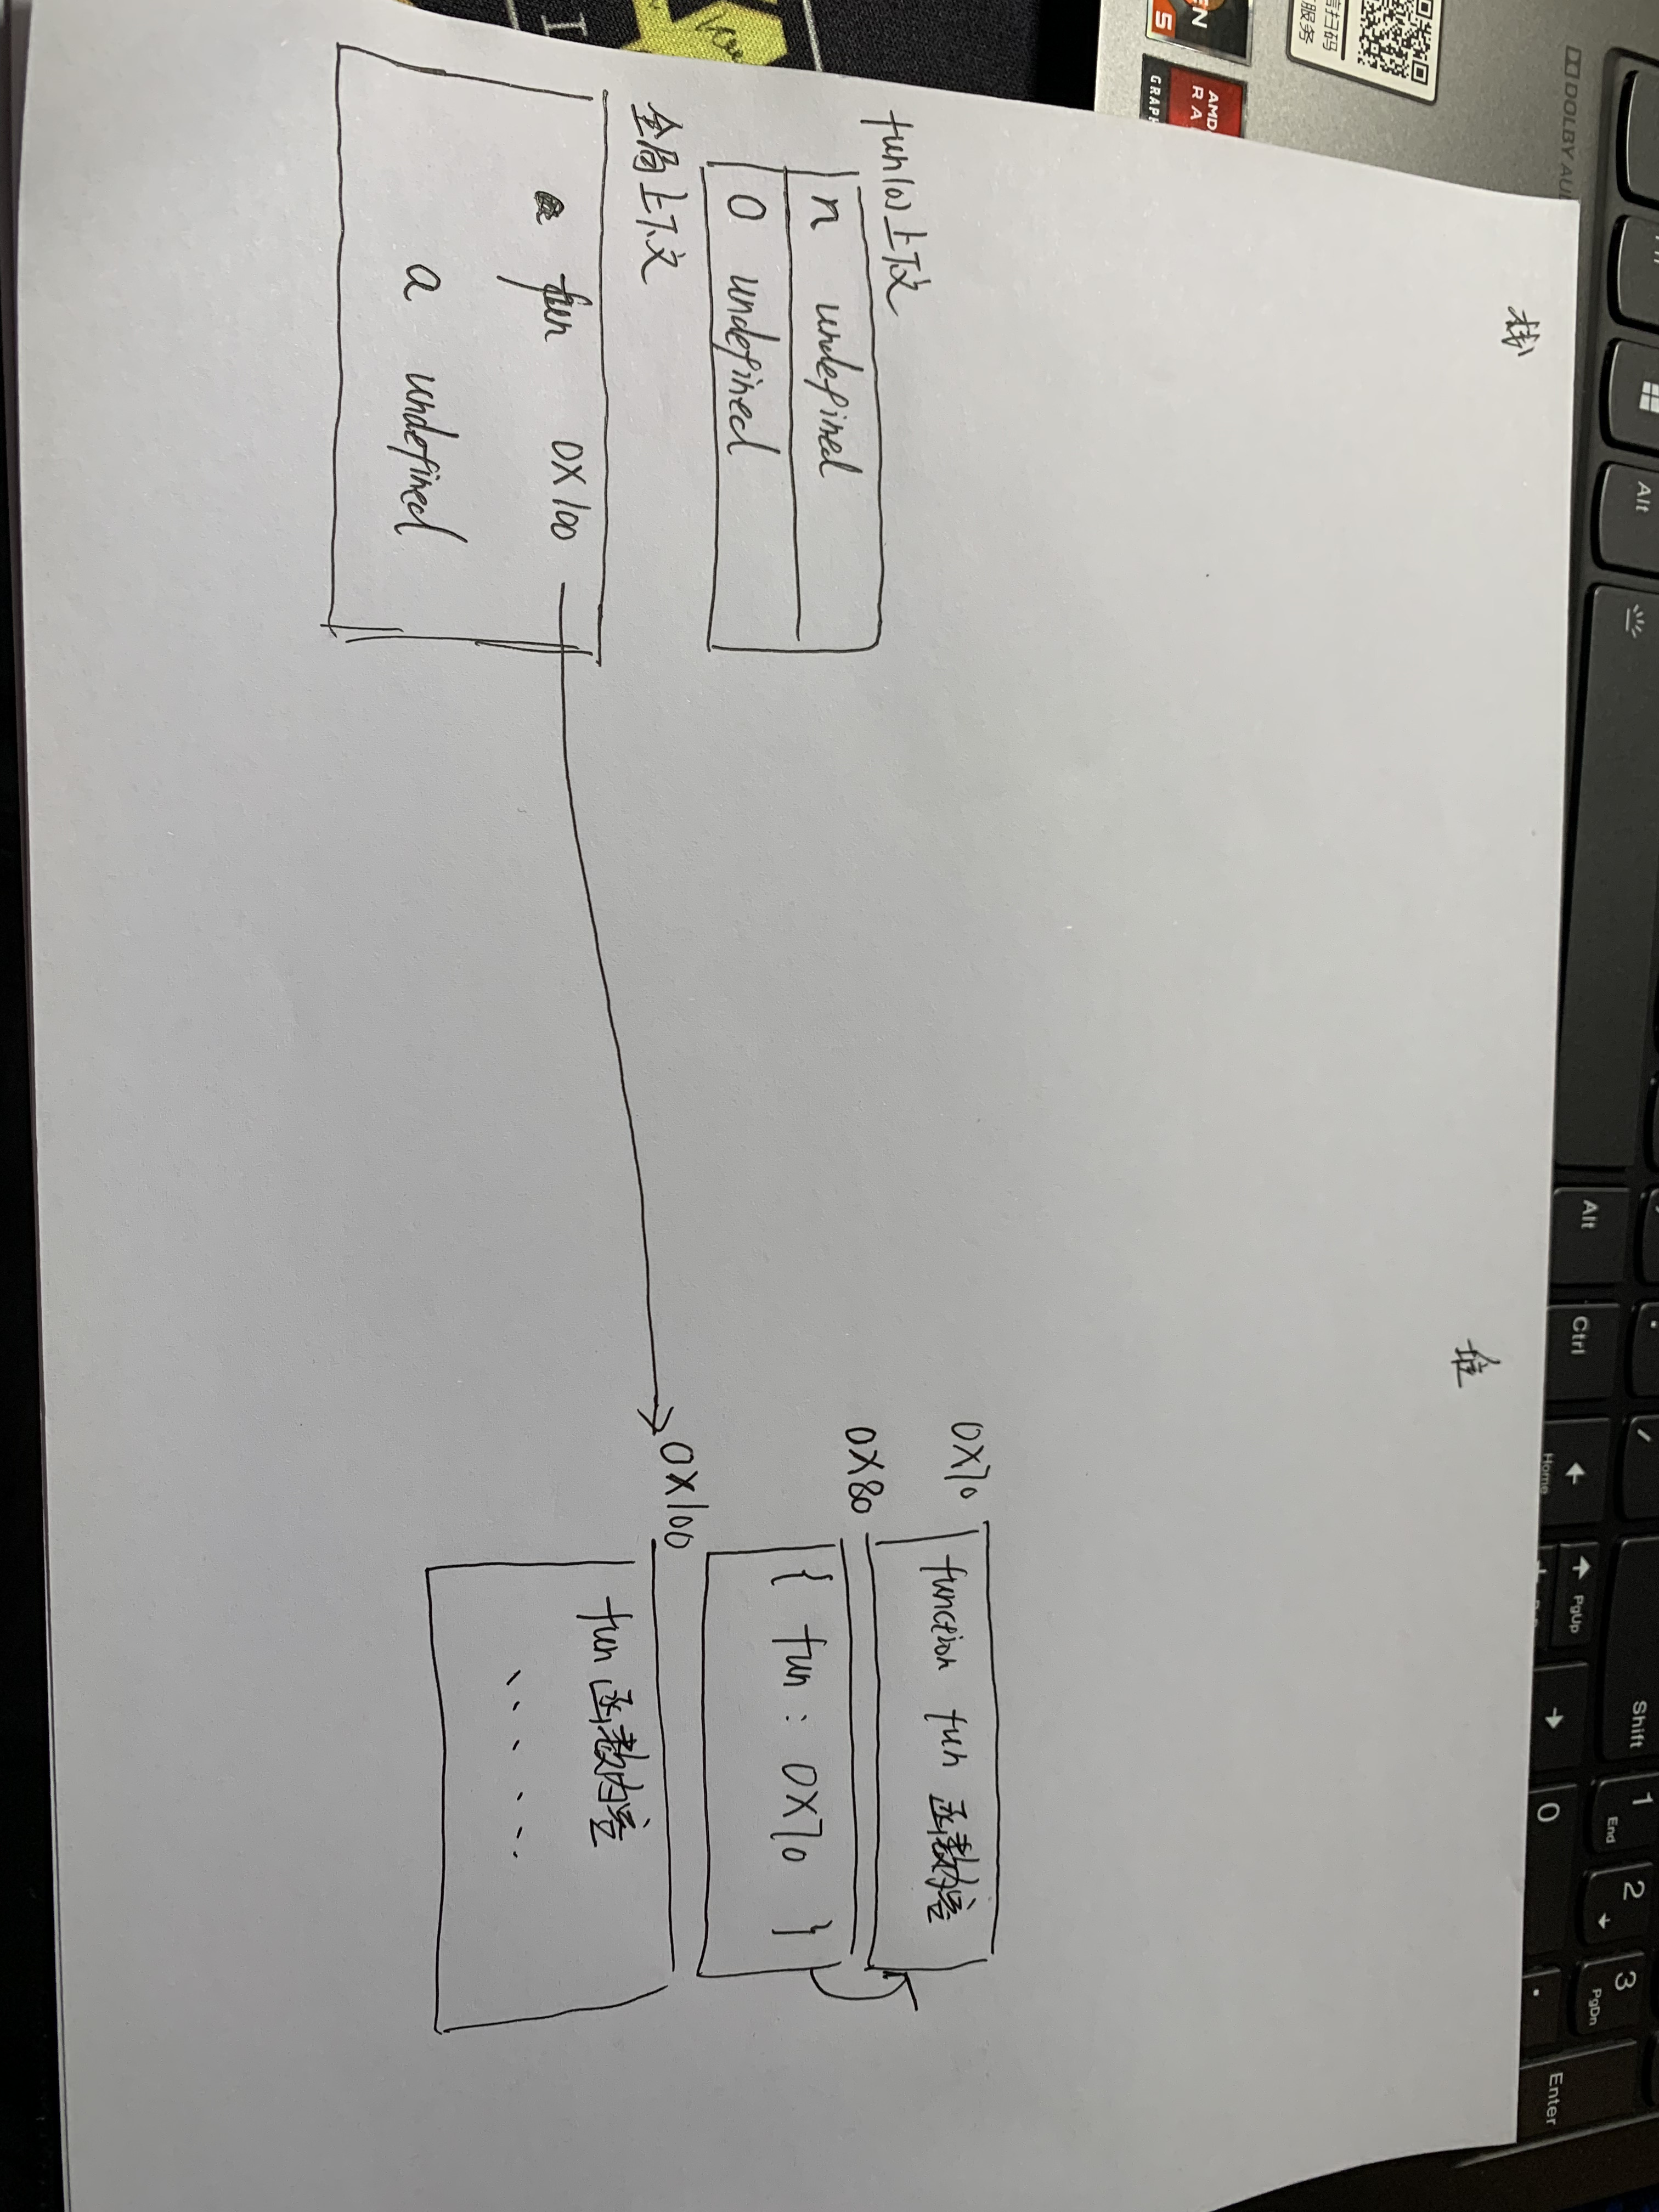 栈
堆
fun(0)上下文
n undefined
0 undefined
全局上下文
fun 0X100
a undefined
0X70
function fun 函数内容
0X80
{ fun : 0X70 }
0X100
fun 函数内容
.....
EN
5
AMD
RA
GRAPH
扫码
服务
DOLBY AU
Alt
Alt
Ctrl
←
Home
↑ PgUp
→
Shift
0
1
End
2
↓
3
PgDn
.
Enter